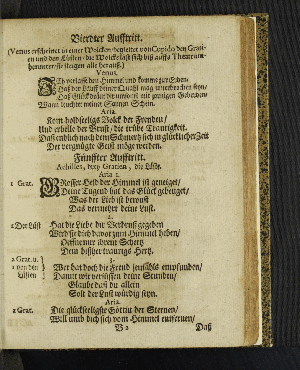 Vierdter Aufftritt.
(Venus erscheinet in einer Wolcken begleitet von Cupido den Grati-
en und den Lüsten: die Wolcke läst sich biß auffs Theatrum
herunter: sie steigen alle heraus.)
Venus.
Ich verlasse den Himmel und komme zur Erden,
Daß der Lauff deiner Quahl mag unterbrochen seyn,
Daß Glück
Wann leuchter meiner Sonnen Schein.
Aria.
Kom holdseeligs Volck der Freuden,
Und erhelle der Brust, die trübe Traurigkeit.
Daß endlich nach dem Schmertz sich in glücklicher Zeit
Der vergnügte Geist möge weiden.
Fünffter Aufftritt.
Achilles, drey Gratien, die Lüste.
Aria 1.
1 Grat. Grosser Held der Himmel ist geneiget,
Deine Tugend hat das Glück gebeuget,
Was der Lieb ist bewust
Das vermehre deine Lust.
2.
1 Der Lüst Hat die Liebe dir Verdruß gegeben
Wird sie dich davor zum Himmel heben,
Deffne nur ihrem Schertz
Dein bißher traurigs Hertz.
3.
2 Grat. u.
1 von den
Lüsten
Wer hat doch die Freud jemahls empfunden,
Damit wir versüssen deine Stunden,
Glaube daß du allein
Solt der Lust würdig seyn.
Aria.
1 Grat. Die glückseeligste Göttin der Sternen,
Will umb dich sich vom Himmel entfernen,
B 2 Daß